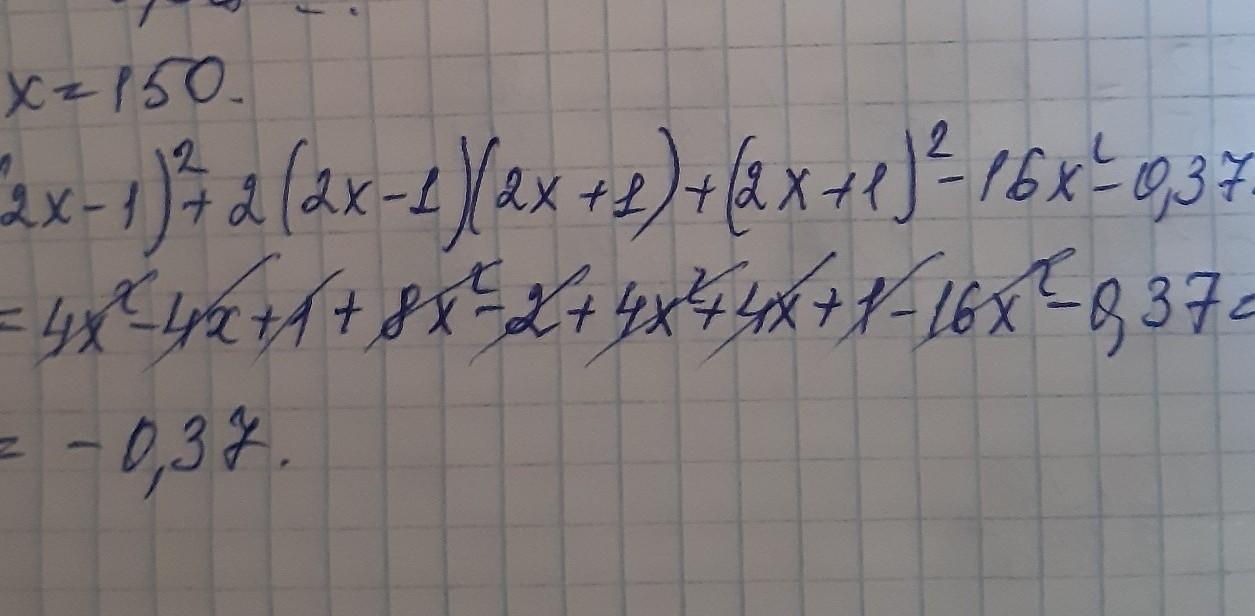 x = 150.
2x-1)²+2(2x-1)(2x+1)+(2x+1)²-16x²-0,37
= 4x²-4x+1+8x²-2+4x²+4x+1-16x²-0,37=
= -0,37.